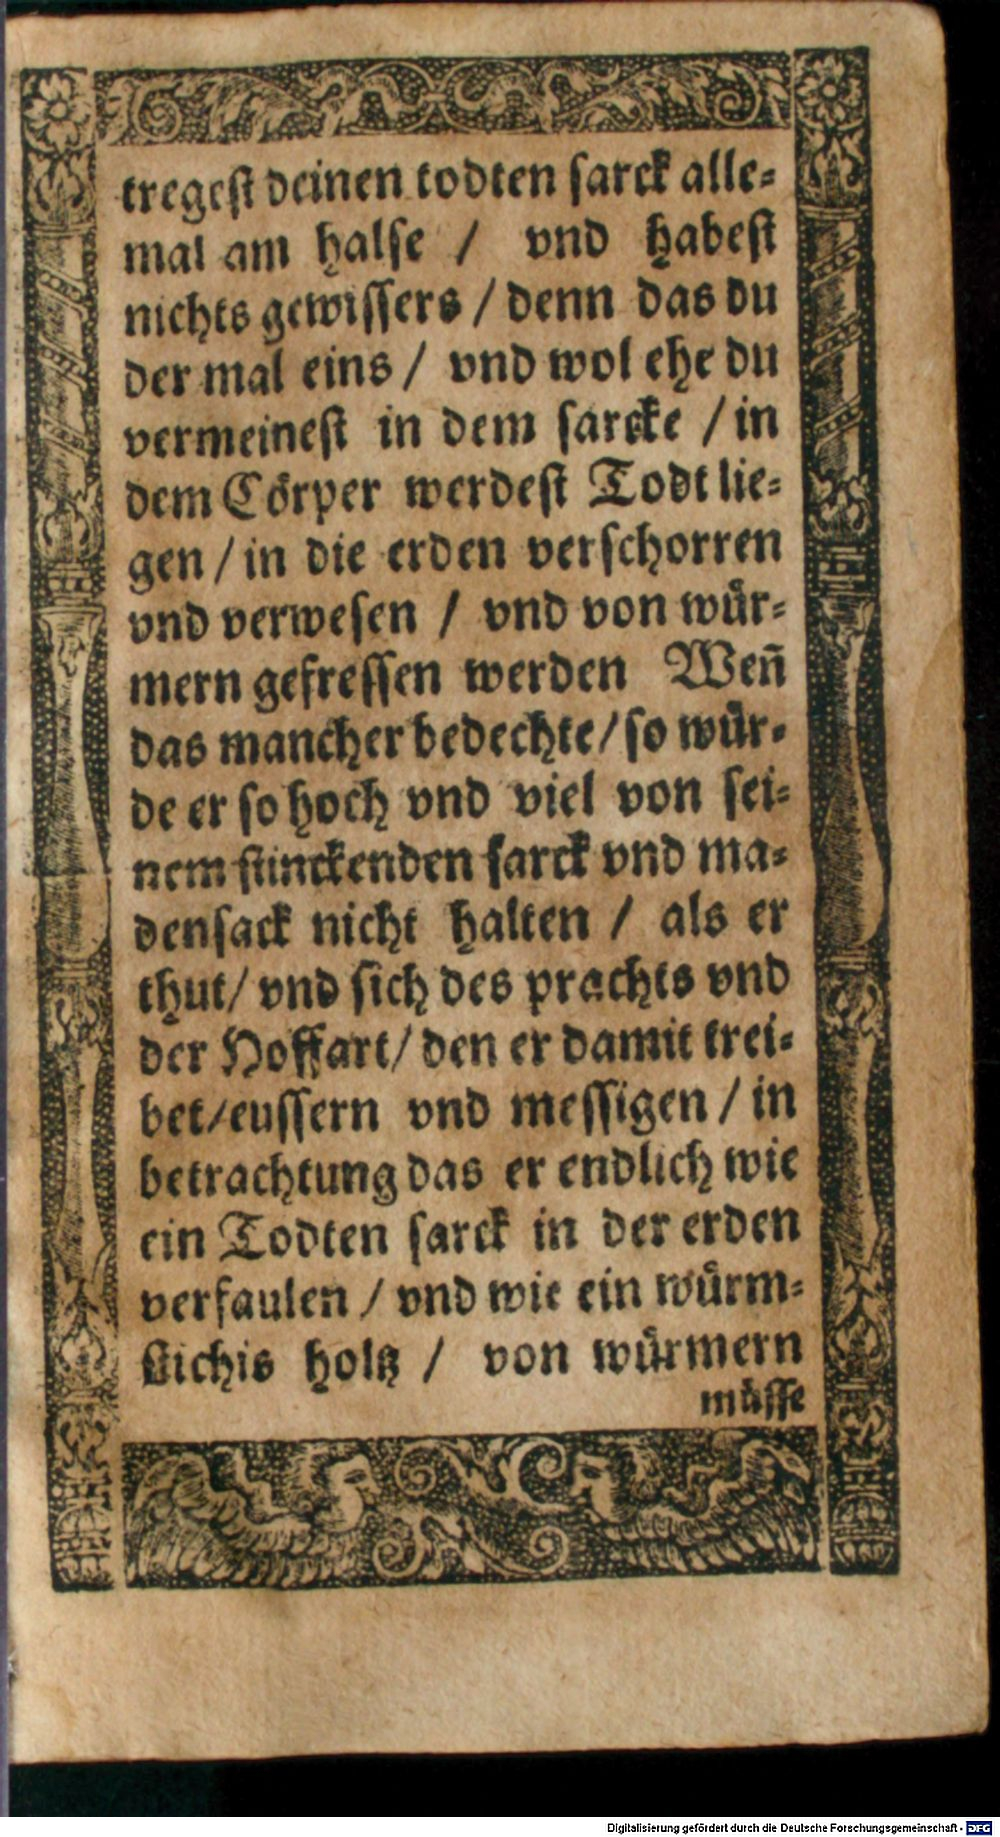 tregeſt deinen todten ſarck alle⸗
mal am halſe / vnd habeſt
nichts gewiſſers / denn das du
der mal eins / vnd wol ehe du
vermeineſt in dem ſarcke / in
dem Cörper werdeſt Todt lie⸗
gen / in die erden verſchorren
vnd verweſen / vnd von wür⸗
mern gefreſſen werden Weñ
das mancher bedechte / ſo wür⸗
de er ſo hoch vnd viel von ſei⸗
nem ſtinckenden ſarck vnd ma⸗
denſack nicht halten / als er
thut / vnd ſich des prachts vnd
der Hoffart / den er damit trei⸗
bet / euſſern vnd meſſigen / in
betrachtung das er endlich wie
ein Todten ſarck in der erden
verfaulen / vnd wie ein würm⸗
ſtichis holtz / von würmern
müſſe
Digitalisierung gefördert durch die Deutsche Forschungsgemeinschaft - DFG